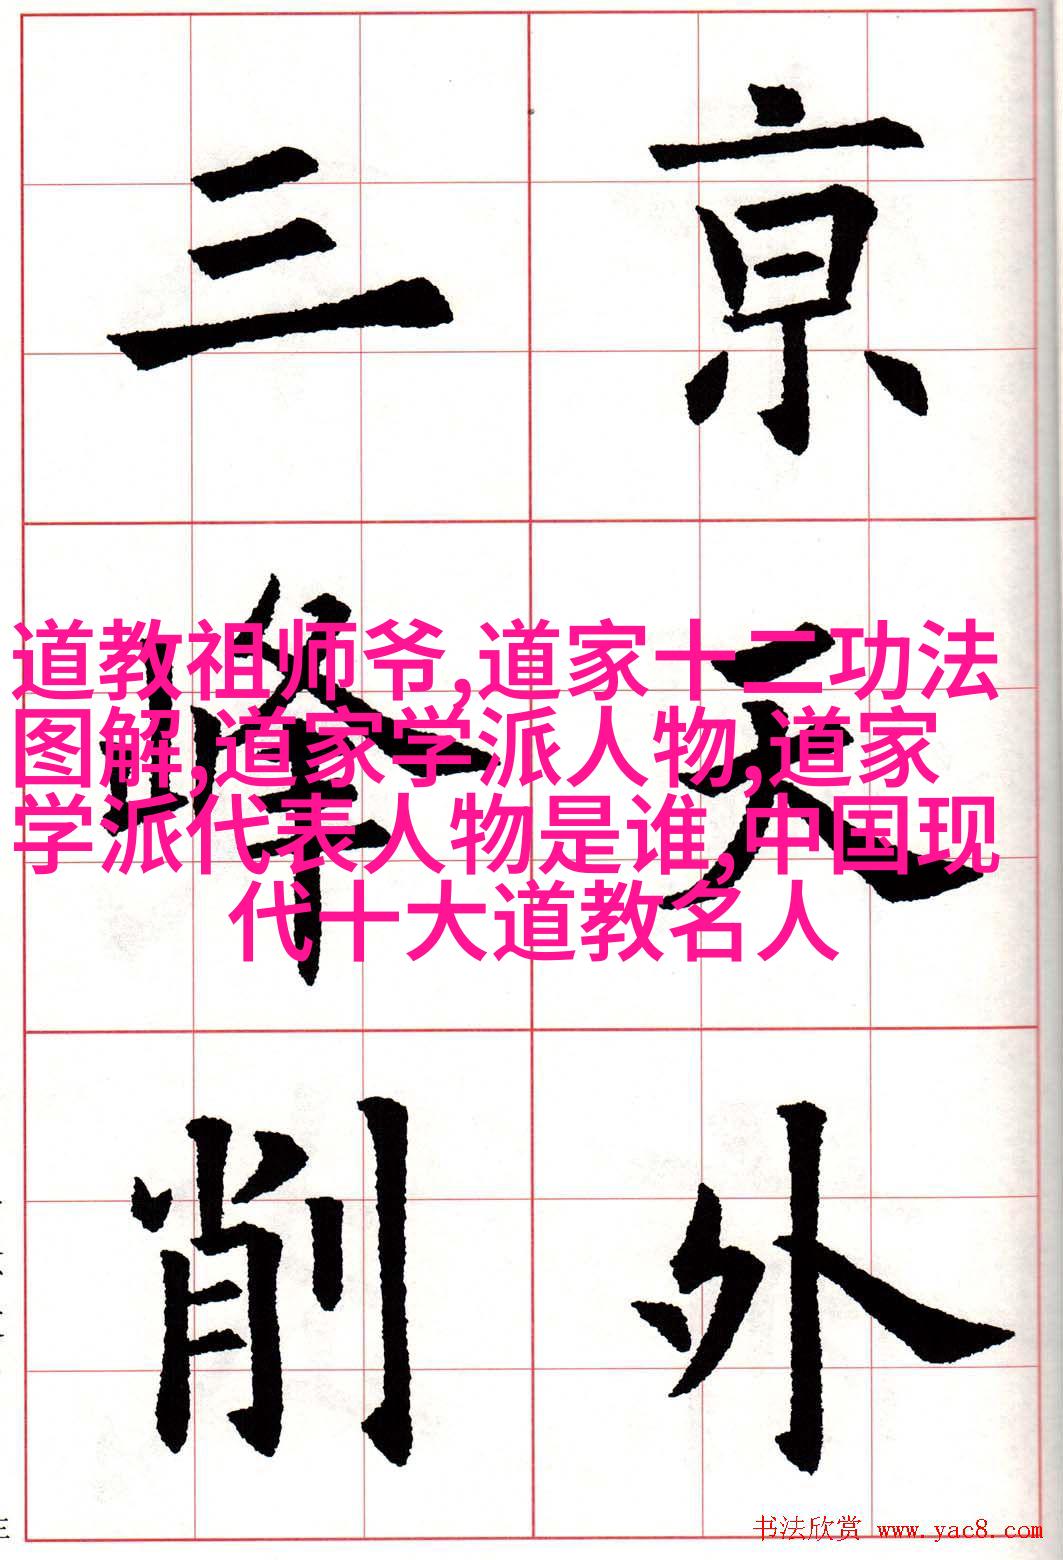 亰天外
三峰削
道教祖师爷,道家十二功法
图解,道家学派人物,道家
学派代表人物是谁,中国现
代十大道教名人
书法欣赏 www.yac8.com